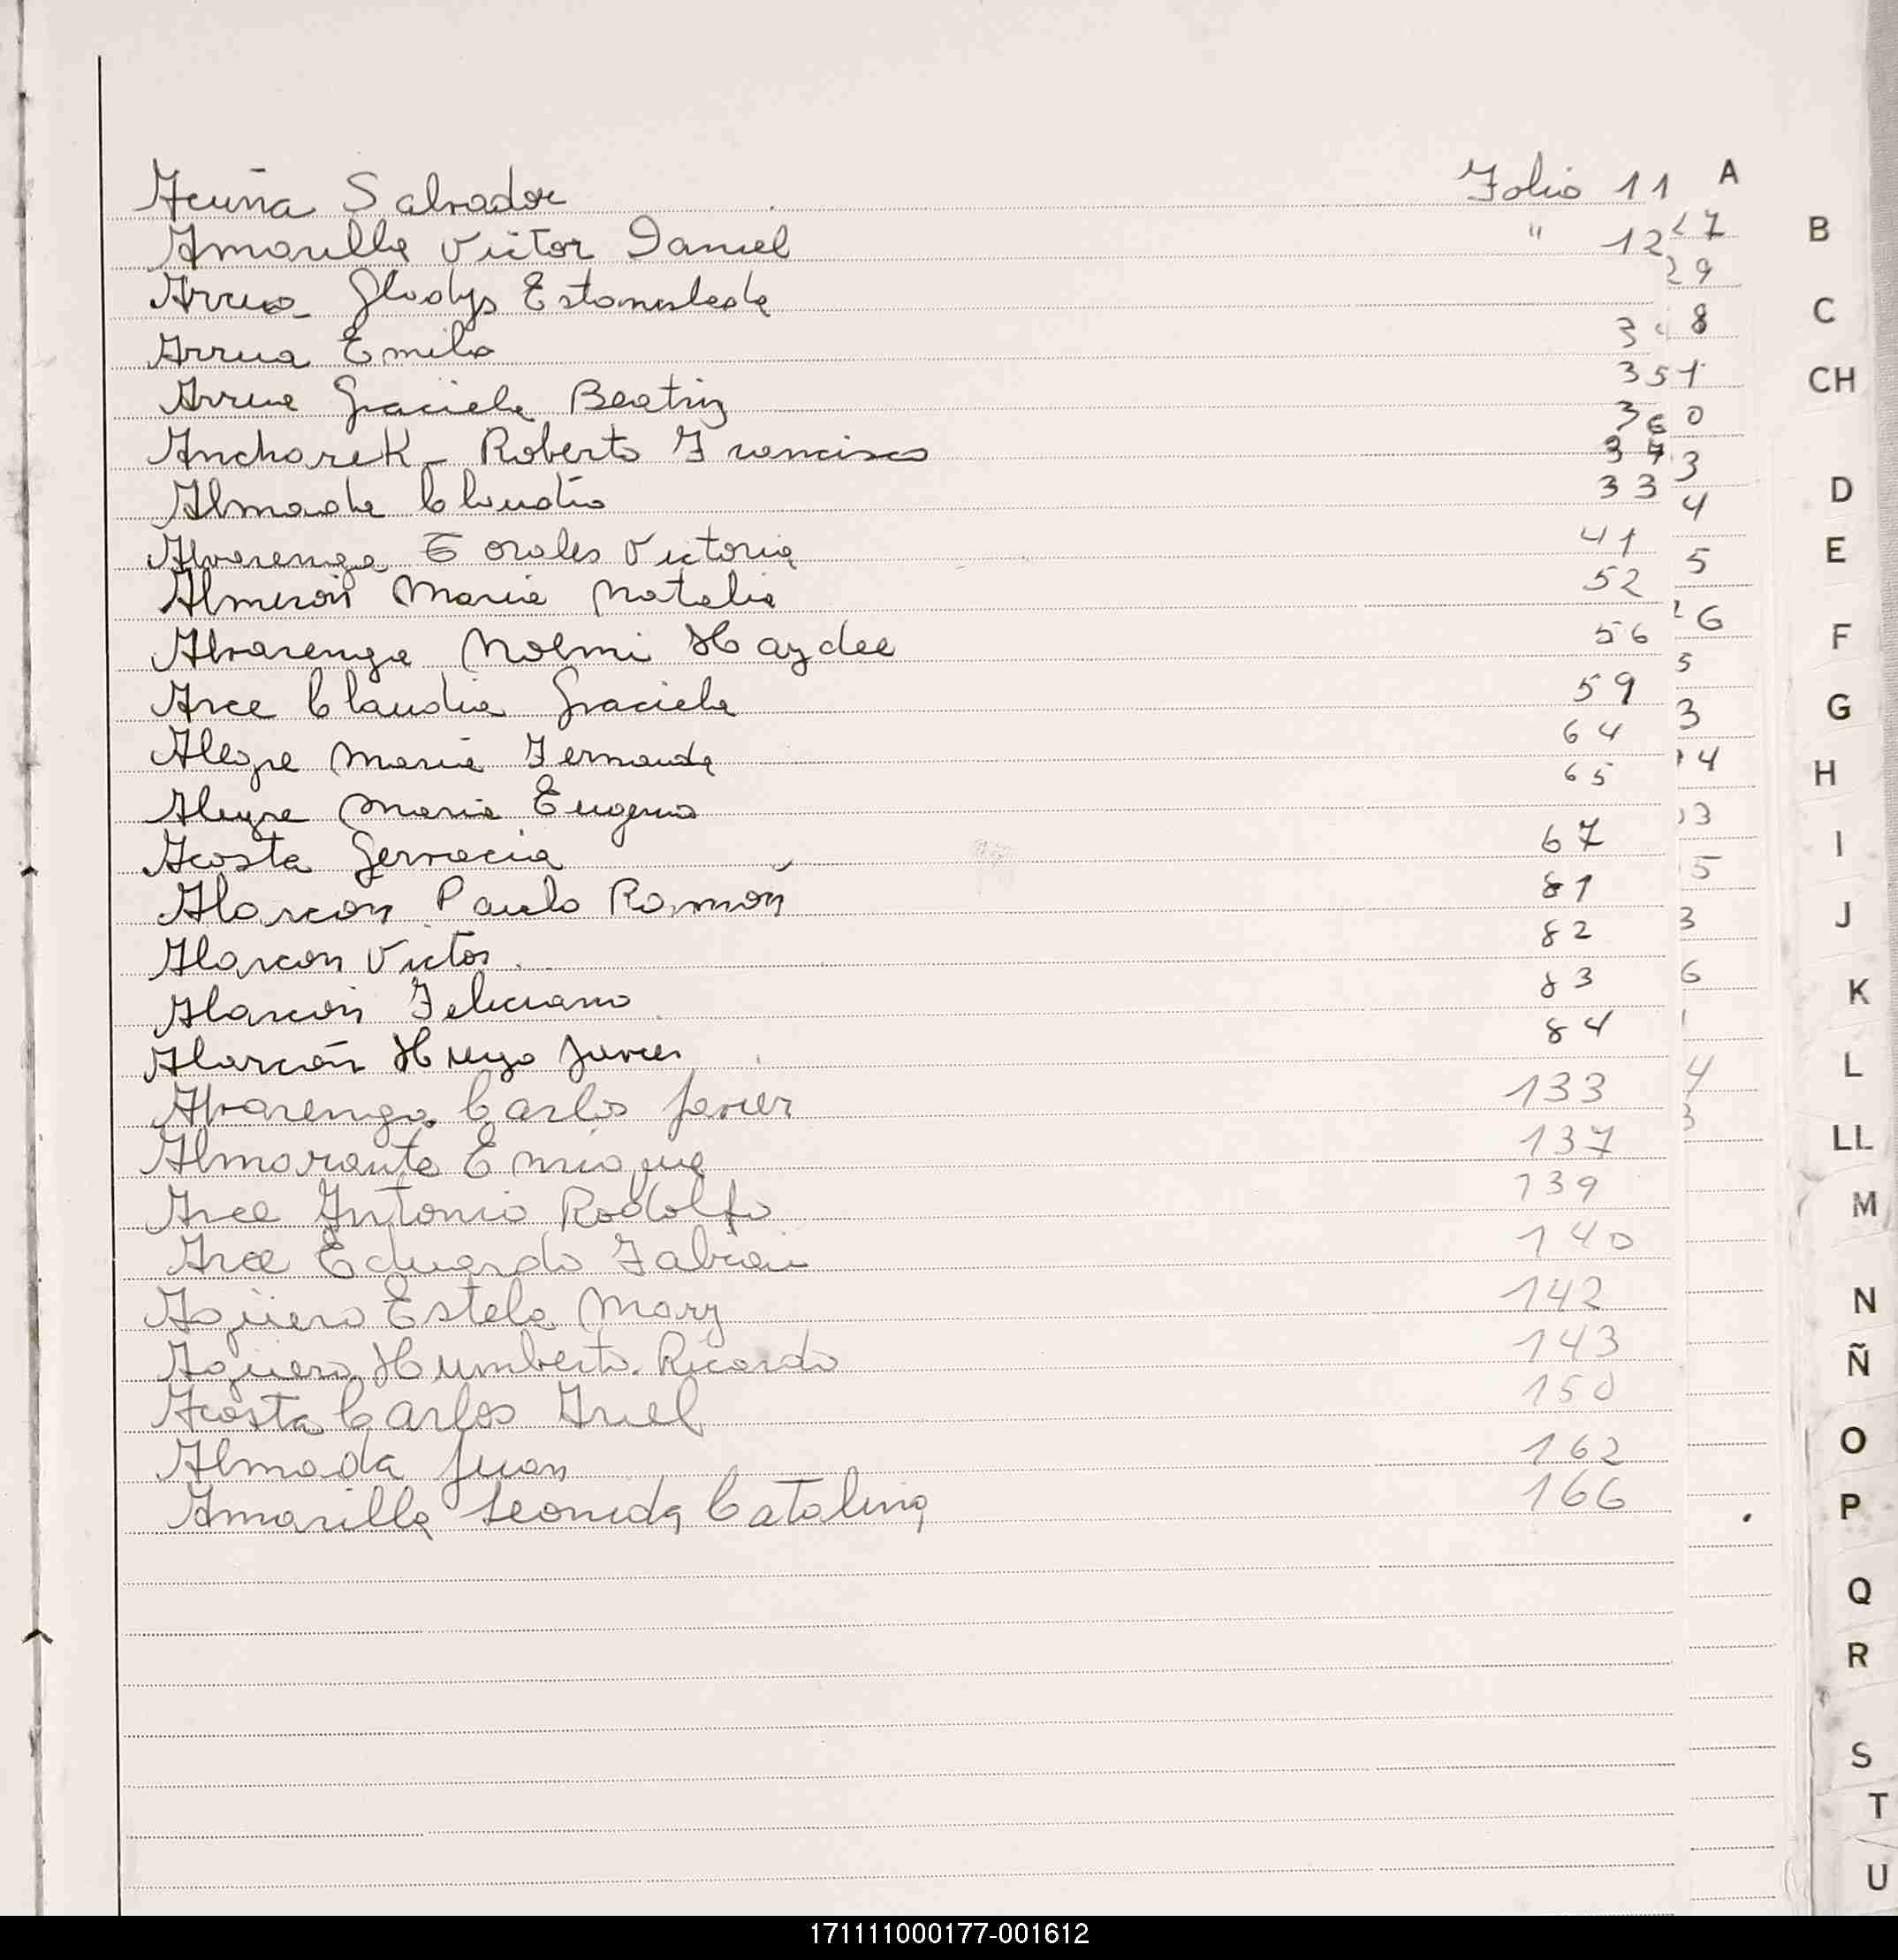 Acuña Salvador Folio 11 A
Amarilla Victor Daniel " 12 7
B
Arrua Gladys Estanislada 29
C
Arrua Emilo 3 8
Arrua Graciela Beatriz 351
CH
Ancharek Roberto Francisco 3 3
Almada Claudio 33 4
D
Alvarenga Torales Victoria 41
E
5
Almiron Maria Natalia 52
6
Alvarenga Noemi Haydee 56
F
5
Arce Claudia Graciela 59
G
3
Alegre Maria Fernanda 64
4
H
Alegre Maria Eugenia 65
3
Acosta Gervacia 67
I
5
Alarcon Paulo Ramón 81
J
3
Alarcon Victor 82
6
Alarcon Feliciano 83
K
Alarcón Hugo Javier 84
L
4
Alvarenga Carlos Javier 133
3
Almaranto Enrique 137
LL
Arce Antonio Rodolfo 139
M
Arce Eduardo Fabian 140
Agüero Estela Mary 142
N
Aguero Humberto Ricardo 143
Ñ
Acosta Carlos Ariel 150
O
Almada Juan 162
Amarilla Leonida Catalina 166
P
Q
R
S
T
U
171111000177-001612